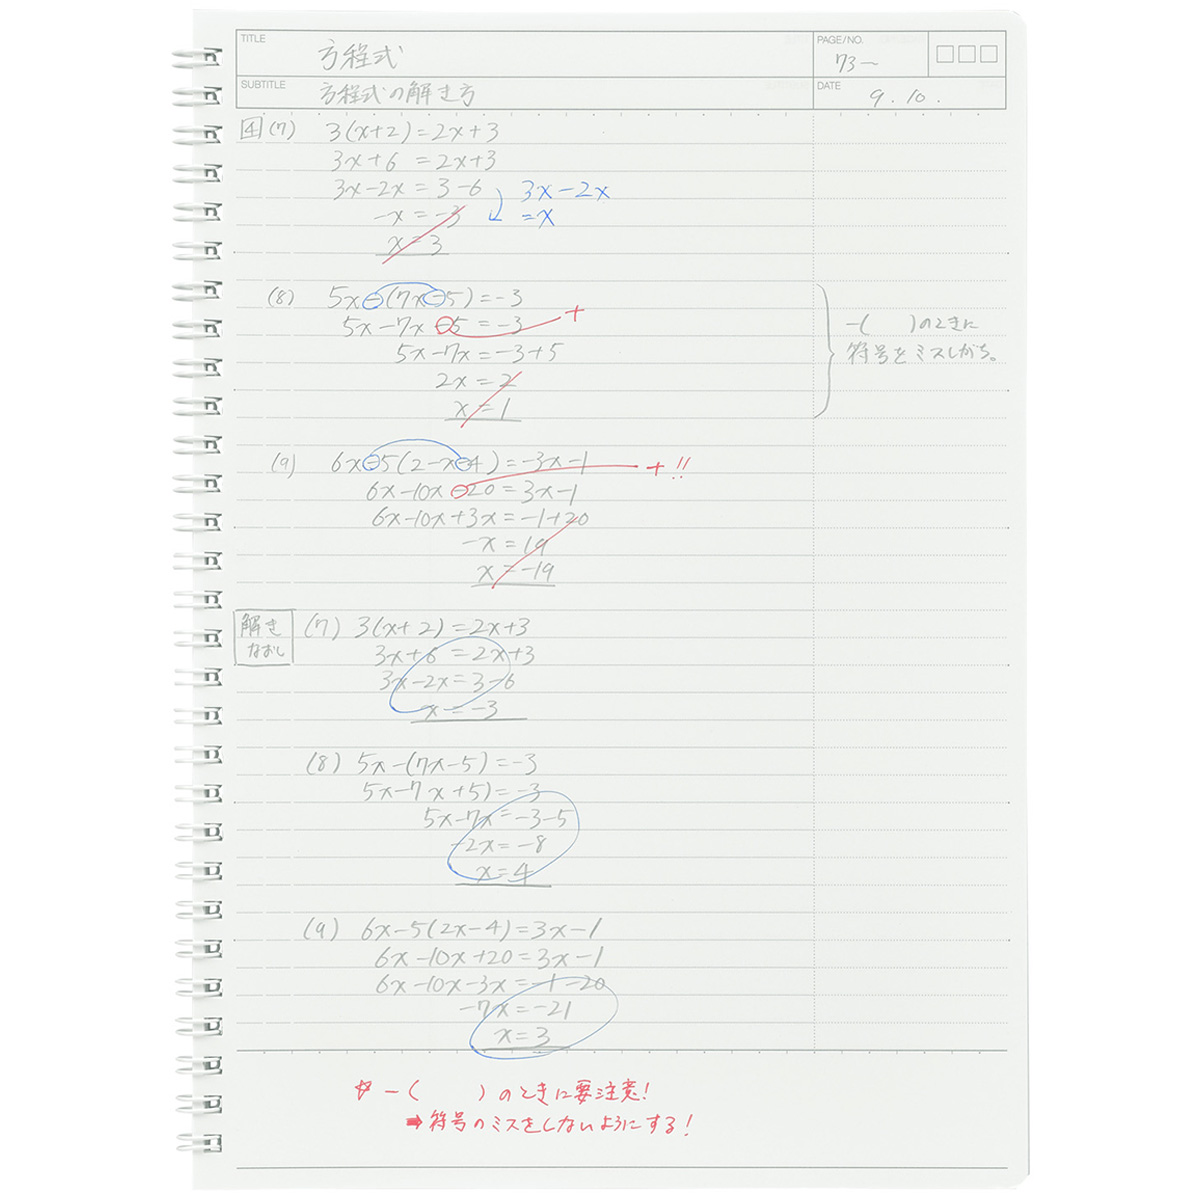 TITLE 方程式 PAGE/NO. 73〜
SUBTITLE 方程式の解き方 DATE 9.10.
4 (7) 3(x+2)=2x+3
3x+6 =2x+3
3x-2x=3-6 3x-2x
-x=-3 =x
x=3
(8) 5x-(7x-5)=-3
5x-7x-5=-3 +
5x-7x=-3+5
2x=2
x=1
-( )のときに
符号をミスしがち。
(9) 6x-5(2-x-4)=-3x-1 +!!
6x-10x-20=3x-1
6x-10x+3x=-1+20
-x=19
x=-19
解き
なおし
(7) 3(x+2)=2x+3
3x+6 =2x+3
3x-2x=3-6
x=-3
(8) 5x-(7x-5)=-3
5x-7x+5)=-3
5x-7x=-3-5
-2x=-8
x=4
(9) 6x-5(2x-4)=3x-1
6x-10x+20=3x-1
6x-10x-3x=-1-20
-7x=-21
x=3
☆-( )のときに要注意!
➡符号のミスをしないようにする!